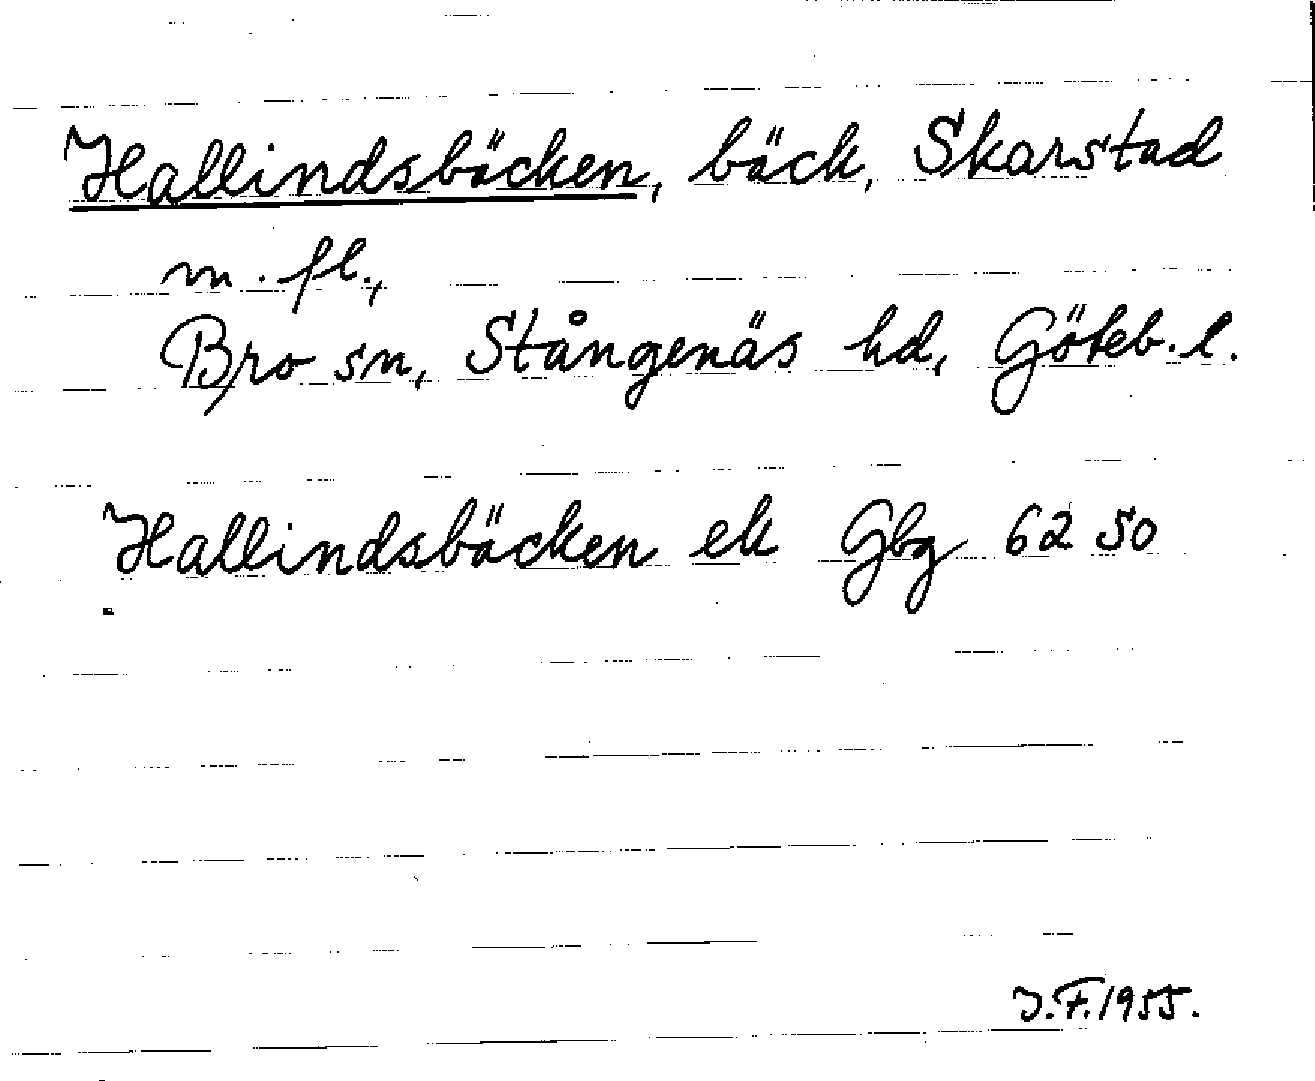 Hallindsbäcken, bäck, Skarstad
m. fl.,
Bro sn, Stångenäs hd, Göteb. l.
Hallindsbäcken ek Gbg 62 50
J.F. 1955.